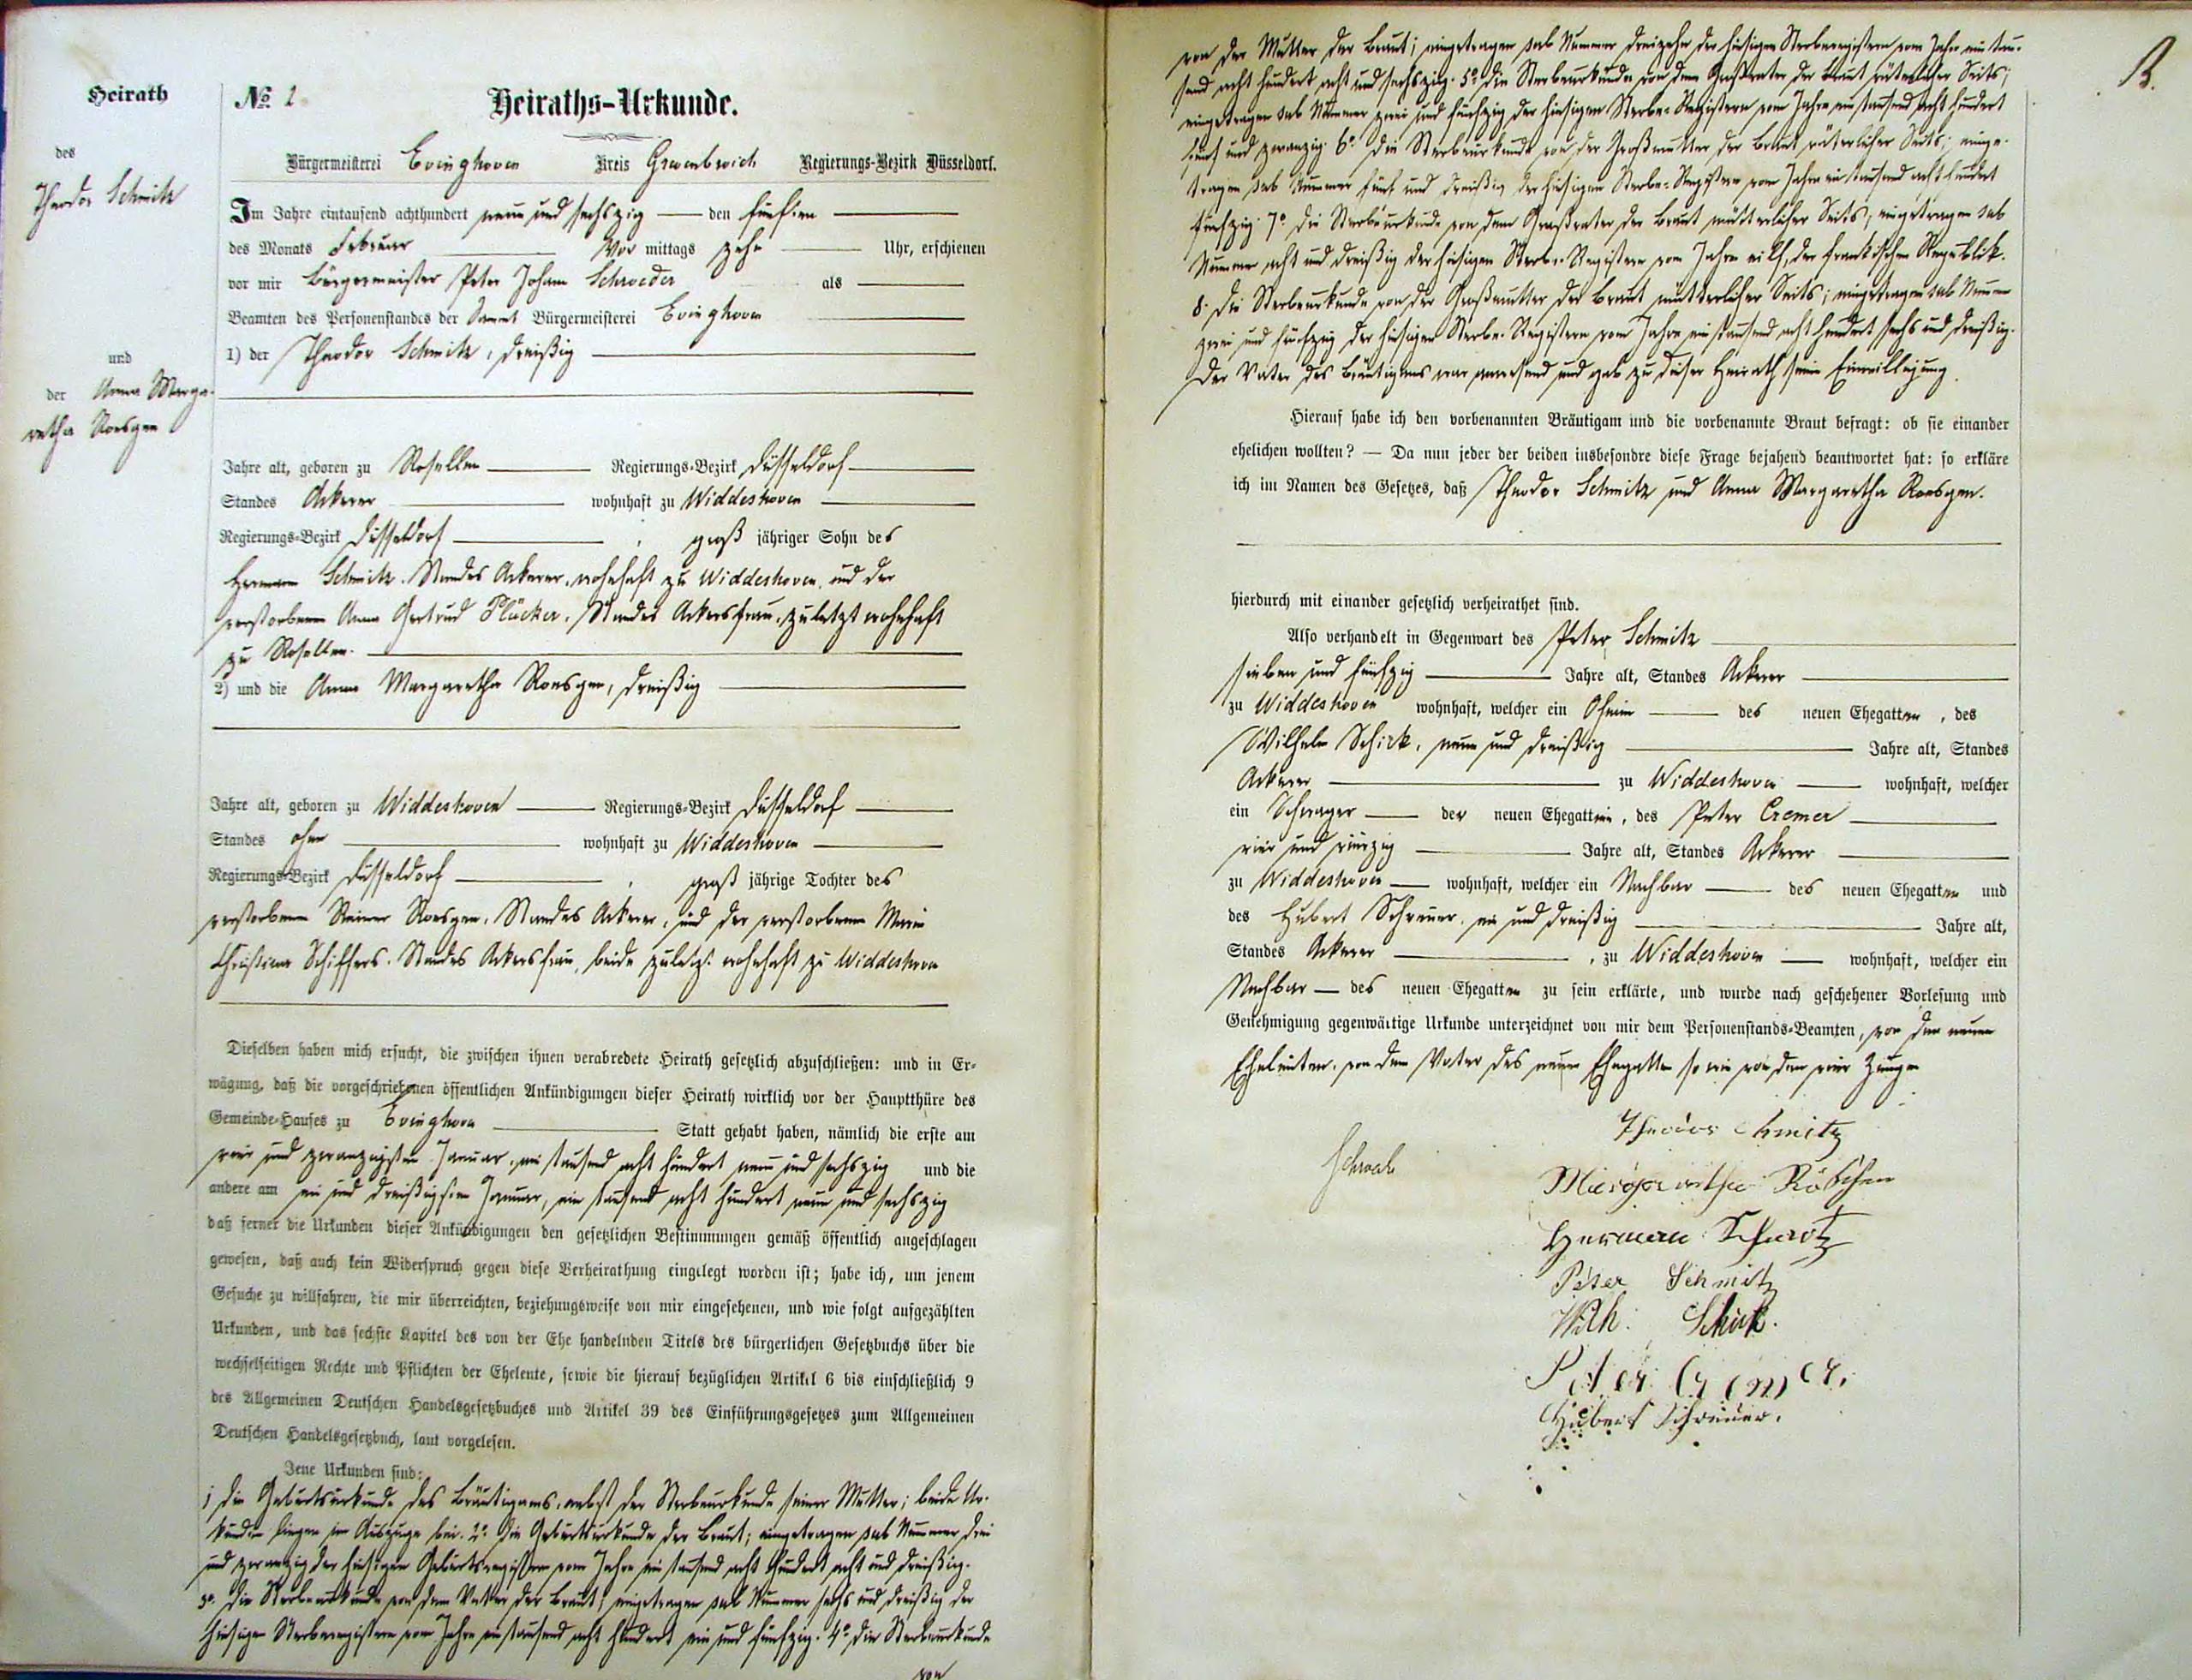 Heirath
des
Theodor Schmitz
und
der Anna Marga-
retha Roesgen
No 2
Heiraths-Urkunde.
Bürgermeisterei Evinghoven Kreis Grevenbroich Regierungs-Bezirk Düsseldorf.
Im Jahre eintausend achthundert neun und sechszig den fünften
des Monats Februar Vor mittags zehn Uhr, erschienen
vor mir Bürgermeister Peter Johann Schroeder als
Beamten des Personenstandes der Sammt Bürgermeisterei Evinghoven
1) der Theodor Schmitz, dreißig
Jahre alt, geboren zu Rosellen Regierungs-Bezirk Düsseldorf
Standes Ackerer wohnhaft zu Widdeshoven
Regierungs-Bezirk Düsseldorf, groß jähriger Sohn des
Hermann Schmitz, Standes Ackerer, wohnhaft zu Widdeshoven und der
verstorbenen Anna Gertrud Plücker, Standes Ackersfrau, zuletzt wohnhaft
zu Rosellen.
2) und die Anna Margaretha Roesgen, dreißig
Jahre alt, geboren zu Widdeshoven Regierungs-Bezirk Düsseldorf
Standes ohne wohnhaft zu Widdeshoven
Regierungs-Bezirk Düsseldorf, groß jährige Tochter des
verstorbenen Reiner Roesgen, Standes Ackerer, und der verstorbenen Maria
Christina Schiffers, Standes Ackersfrau, beide zuletzt wohnhaft zu Widdeshoven
Dieselben haben mich ersucht, die zwischen ihnen verabredete Heirath gesetzlich abzuschließen: und in Er-
wägung, daß die vorgeschriebenen öffentlichen Ankündigungen dieser Heirath wirklich vor der Hauptthüre des
Gemeinde-Hauses zu Evinghoven Statt gehabt haben, nämlich die erste am
vier und zwanzigsten Januar, ein tausend acht hundert neun und sechszig und die
andere am ein und dreißigsten Januar, ein tausend acht hundert neun und sechszig
daß ferner die Urkunden dieser Ankündigungen den gesetzlichen Bestimmungen gemäß öffentlich angeschlagen
gewesen, daß auch kein Widerspruch gegen diese Verheirathung eingelegt worden ist; habe ich, um jenem
Gesuche zu willfahren, die mir überreichten, beziehungsweise von mir eingesehenen, und wie folgt aufgezählten
Urkunden, und das sechste Kapitel des von der Ehe handelnden Titels des bürgerlichen Gesetzbuchs über die
wechselseitigen Rechte und Pflichten der Eheleute, sowie die hierauf bezüglichen Artikel 6 bis einschließlich 9
des Allgemeinen Deutschen Handelsgesetzbuches und Artikel 39 des Einführungsgesetzes zum Allgemeinen
Deutschen Handelsgesetzbuch, laut vorgelesen.
Jene Urkunden sind:
1 die Geburtsurkunde des Bräutigams, nebst der Sterbeurkunde seiner Mutter; beide Ur-
kunden liegen im Auszuge bei. 2o die Geburtsurkunde der Braut; eingetragen sub Nummer drei
und zwanzig der hiesigen Geburtsregistern vom Jahre ein tausend acht hundert acht und dreißig.
3o die Sterbeurkunde von dem Vater der Braut; eingetragen sub Nummer sechs und dreißig der
hiesigen Sterberegistern vom Jahre ein tausend acht hundert ein und fünfzig. 4o die Sterbeurkunde
von
von der Mutter der Braut; eingetragen sub Nummer dreizehn der hiesigen Sterberegistern vom Jahre ein tau-
send acht hundert acht und sechszig. 5o die Sterbeurkunde von dem Großvater der Braut väterlicher Seits;
eingetragen sub Nummer zwei und fünfzig der hiesigen Sterbe-Registern vom Jahre ein tausend acht hundert
fünf und zwanzig. 6o die Sterbeurkunde von der Großmutter der Braut väterlicher Seits; einge-
tragen sub Nummer fünf und dreißig der hiesigen Sterbe-Registern vom Jahre ein tausend acht hundert
fünfzig. 7o die Sterbeurkunde von dem Großvater der Braut mütterlicher Seits; eingetragen sub
Nummer acht und dreißig der hiesigen Sterbe-Registern vom Jahre eilf, der fränkischen Republik.
8. die Sterbeurkunde von der Großmutter der Braut mütterlicher Seits; eingetragen sub Nummer
zwei und fünfzig der hiesigen Sterbe-Registern vom Jahre ein tausend acht hundert sechs und dreißig.
Der Vater des Bräutigams war anwesend und gab zu dieser Heirath seine Einwilligung.
Hierauf habe ich den vorbenannten Bräutigam und die vorbenannte Braut befragt: ob sie einander
ehelichen wollten? — Da nun jeder der beiden insbesondre diese Frage bejahend beantwortet hat: so erkläre
ich im Namen des Gesetzes, daß Theodor Schmitz und Anna Margaretha Roesgen.
hierdurch mit einander gesetzlich verheirathet sind.
Also verhandelt in Gegenwart des Peter Schmitz
sieben und fünfzig Jahre alt, Standes Ackerer
zu Widdeshoven wohnhaft, welcher ein Oheim des neuen Ehegatten, des
Wilhelm Schick, neun und dreißig Jahre alt, Standes
Ackerer zu Widdeshoven wohnhaft, welcher
ein Schwager der neuen Ehegattin, des Peter Cremer
vier und vierzig Jahre alt, Standes Ackerer
zu Widdeshoven wohnhaft, welcher ein Nachbar des neuen Ehegatten und
des Hubert Schreuer, ein und dreißig Jahre alt,
Standes Ackerer, zu Widdeshoven wohnhaft, welcher ein
Nachbar des neuen Ehegatten zu sein erklärte, und wurde nach geschehener Vorlesung und
Genehmigung gegenwärtige Urkunde unterzeichnet von mir dem Personenstands-Beamten, von den neuen
Eheleuten, von dem Vater des neuen Ehegatten so wie von den vier Zeugen
Theodor Schmitz
Margaretha Röschen
Herman Schmitz
Peter Schmitz
Wilh. Schick.
Peter Cremer.
Hubert Schreuer.